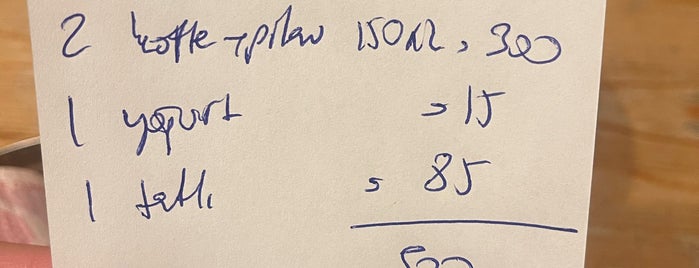 2 köfte + pilav 150x2 = 300
1 yoğurt = 15
1 tatlı = 85